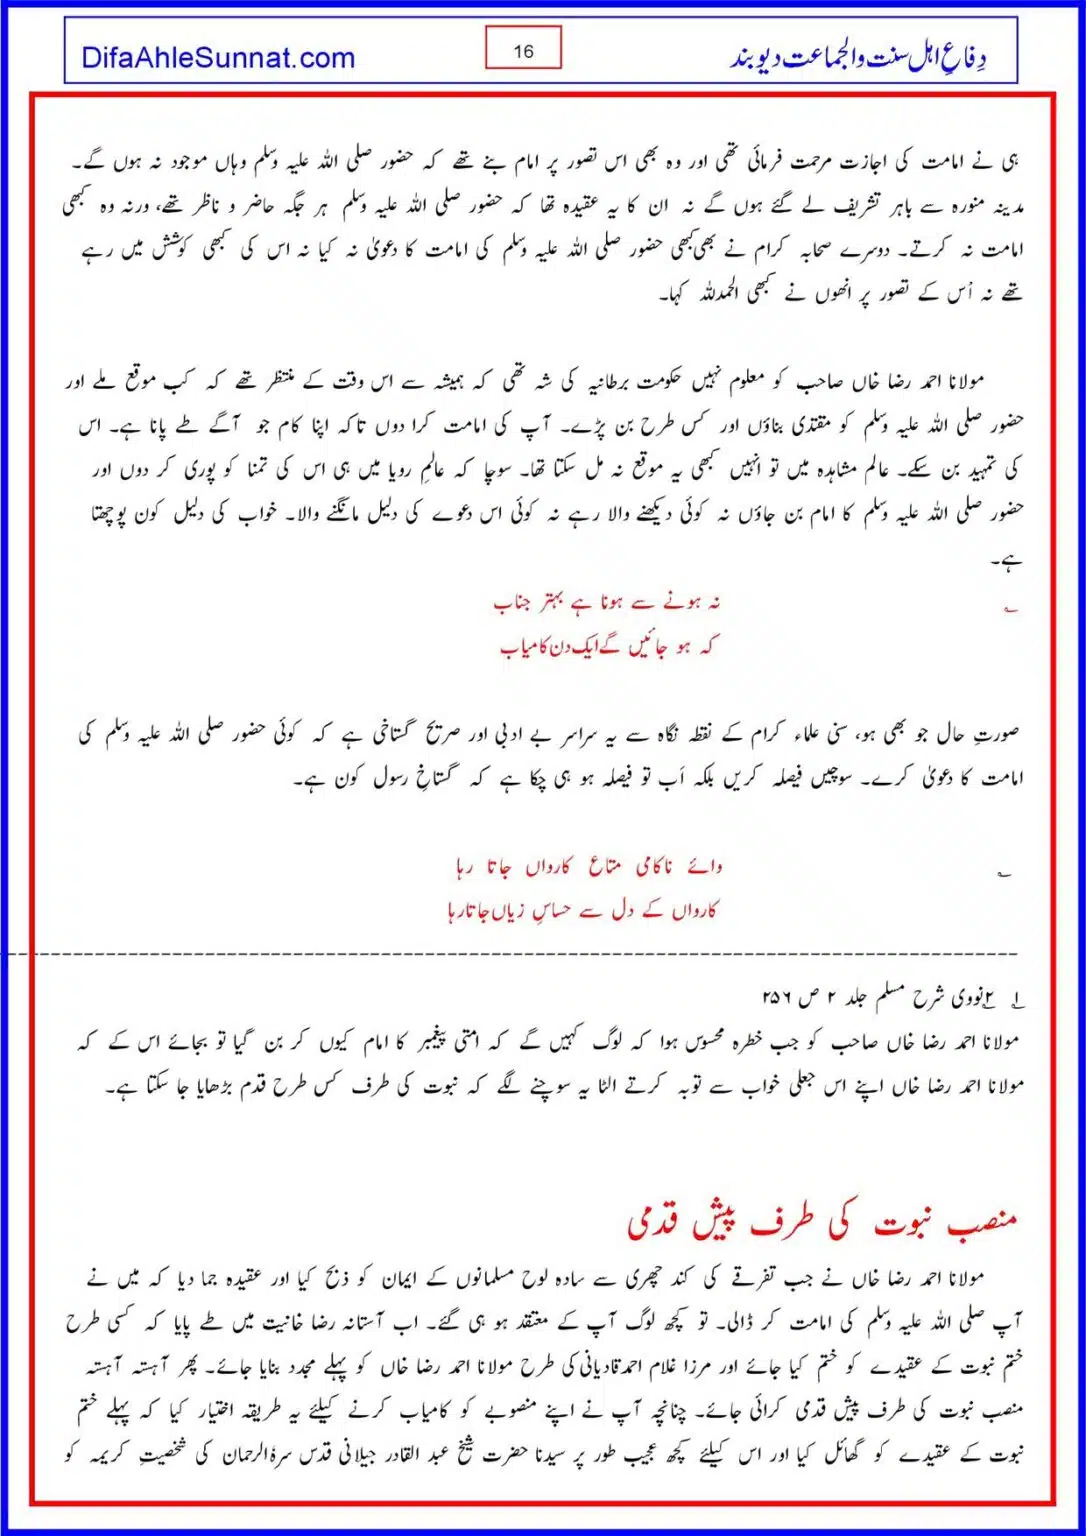 DifaAhleSunnat.com 16 دِفاعِ اہل سنت والجماعت دیوبند
ہی نے امامت کی اجازت مرحمت فرمائی تھی اور وہ بھی اس تصور پر امام بنے تھے کہ حضور صلی اللہ علیہ وسلم وہاں موجود نہ ہوں گے۔
مدینہ منورہ سے باہر تشریف لے گئے ہوں گے نہ ان کا یہ عقیدہ تھا کہ حضور صلی اللہ علیہ وسلم ہر جگہ حاضر و ناظر تھے، ورنہ وہ کبھی
امامت نہ کرتے۔ دوسرے صحابہ کرام نے بھی کبھی حضور صلی اللہ علیہ وسلم کی امامت کا دعویٰ نہ کیا نہ اس کی کبھی کوشش میں رہے
تھے نہ اُس کے تصور پر انھوں نے کبھی الحمدللہ کہا۔
مولانا احمد رضا خاں صاحب کو معلوم نہیں حکومت برطانیہ کی شہ تھی کہ ہمیشہ سے اس وقت کے منتظر تھے کہ کب موقع ملے اور
حضور صلی اللہ علیہ وسلم کو مقتدی بناؤں اور کس طرح بن پڑے۔ آپ کی امامت کرا دوں تاکہ اپنا کام جو آگے طے پانا ہے۔ اس
کی تمہید بن سکے۔ عالم مشاہدہ میں تو انہیں کبھی یہ موقع نہ مل سکتا تھا۔ سوچا کہ عالمِ رویا میں ہی اس کی تمنا کو پوری کر دوں اور
حضور صلی اللہ علیہ وسلم کا امام بن جاؤں نہ کوئی دیکھنے والا رہے نہ کوئی اس دعوے کی دلیل مانگنے والا۔ خواب کی دلیل کون پوچھتا
ہے۔
؎ نہ ہونے سے ہونا ہے بہتر جناب
کہ ہو جائیں گے ایک دن کامیاب
صورتِ حال جو بھی ہو، سنی علماء کرام کے نقطہ نگاہ سے یہ سراسر بے ادبی اور صریح گستاخی ہے کہ کوئی حضور صلی اللہ علیہ وسلم کی
امامت کا دعویٰ کرے۔ سوچیں فیصلہ کریں بلکہ اَب تو فیصلہ ہو ہی چکا ہے کہ گستاخِ رسول کون ہے۔
؎ وائے ناکامی متاع کارواں جاتا رہا
کارواں کے دل سے حساسِ زیاں جاتا رہا
۱؂ ۲؂نووی شرح مسلم جلد ۲ ص ۲۵۶
مولانا احمد رضا خاں صاحب کو جب خطرہ محسوس ہوا کہ لوگ کہیں گے کہ امتی پیغمبر کا امام کیوں کر بن گیا تو بجائے اس کے کہ
مولانا احمد رضا خاں اپنے اس جعلی خواب سے توبہ کرتے الٹا یہ سوچنے لگے کہ نبوت کی طرف کس طرح قدم بڑھایا جا سکتا ہے۔
منصب نبوت کی طرف پیش قدمی
مولانا احمد رضا خاں نے جب تفرقے کی کند چھری سے سادہ لوح مسلمانوں کے ایمان کو ذبح کیا اور عقیدہ جما دیا کہ میں نے
آپ صلی اللہ علیہ وسلم کی امامت کر ڈالی۔ تو کچھ لوگ آپ کے معتقد ہو ہی گئے۔ اب آستانہ رضا خانیت میں طے پایا کہ کسی طرح
ختم نبوت کے عقیدے کو ختم کیا جائے اور مرزا غلام احمد قادیانی کی طرح مولانا احمد رضا خاں کو پہلے مجدد بنایا جائے۔ پھر آہستہ آہستہ
منصب نبوت کی طرف پیش قدمی کرائی جائے۔ چنانچہ آپ نے اپنے منصوبے کو کامیاب کرنے کیلئے یہ طریقہ اختیار کیا کہ پہلے ختم
نبوت کے عقیدے کو گھائل کیا اور اس کیلئے کچھ عجیب طور پر سیدنا حضرت شیخ عبد القادر جیلانی قدس سرہٗ الرحمان کی شخصیتِ کریمہ کو